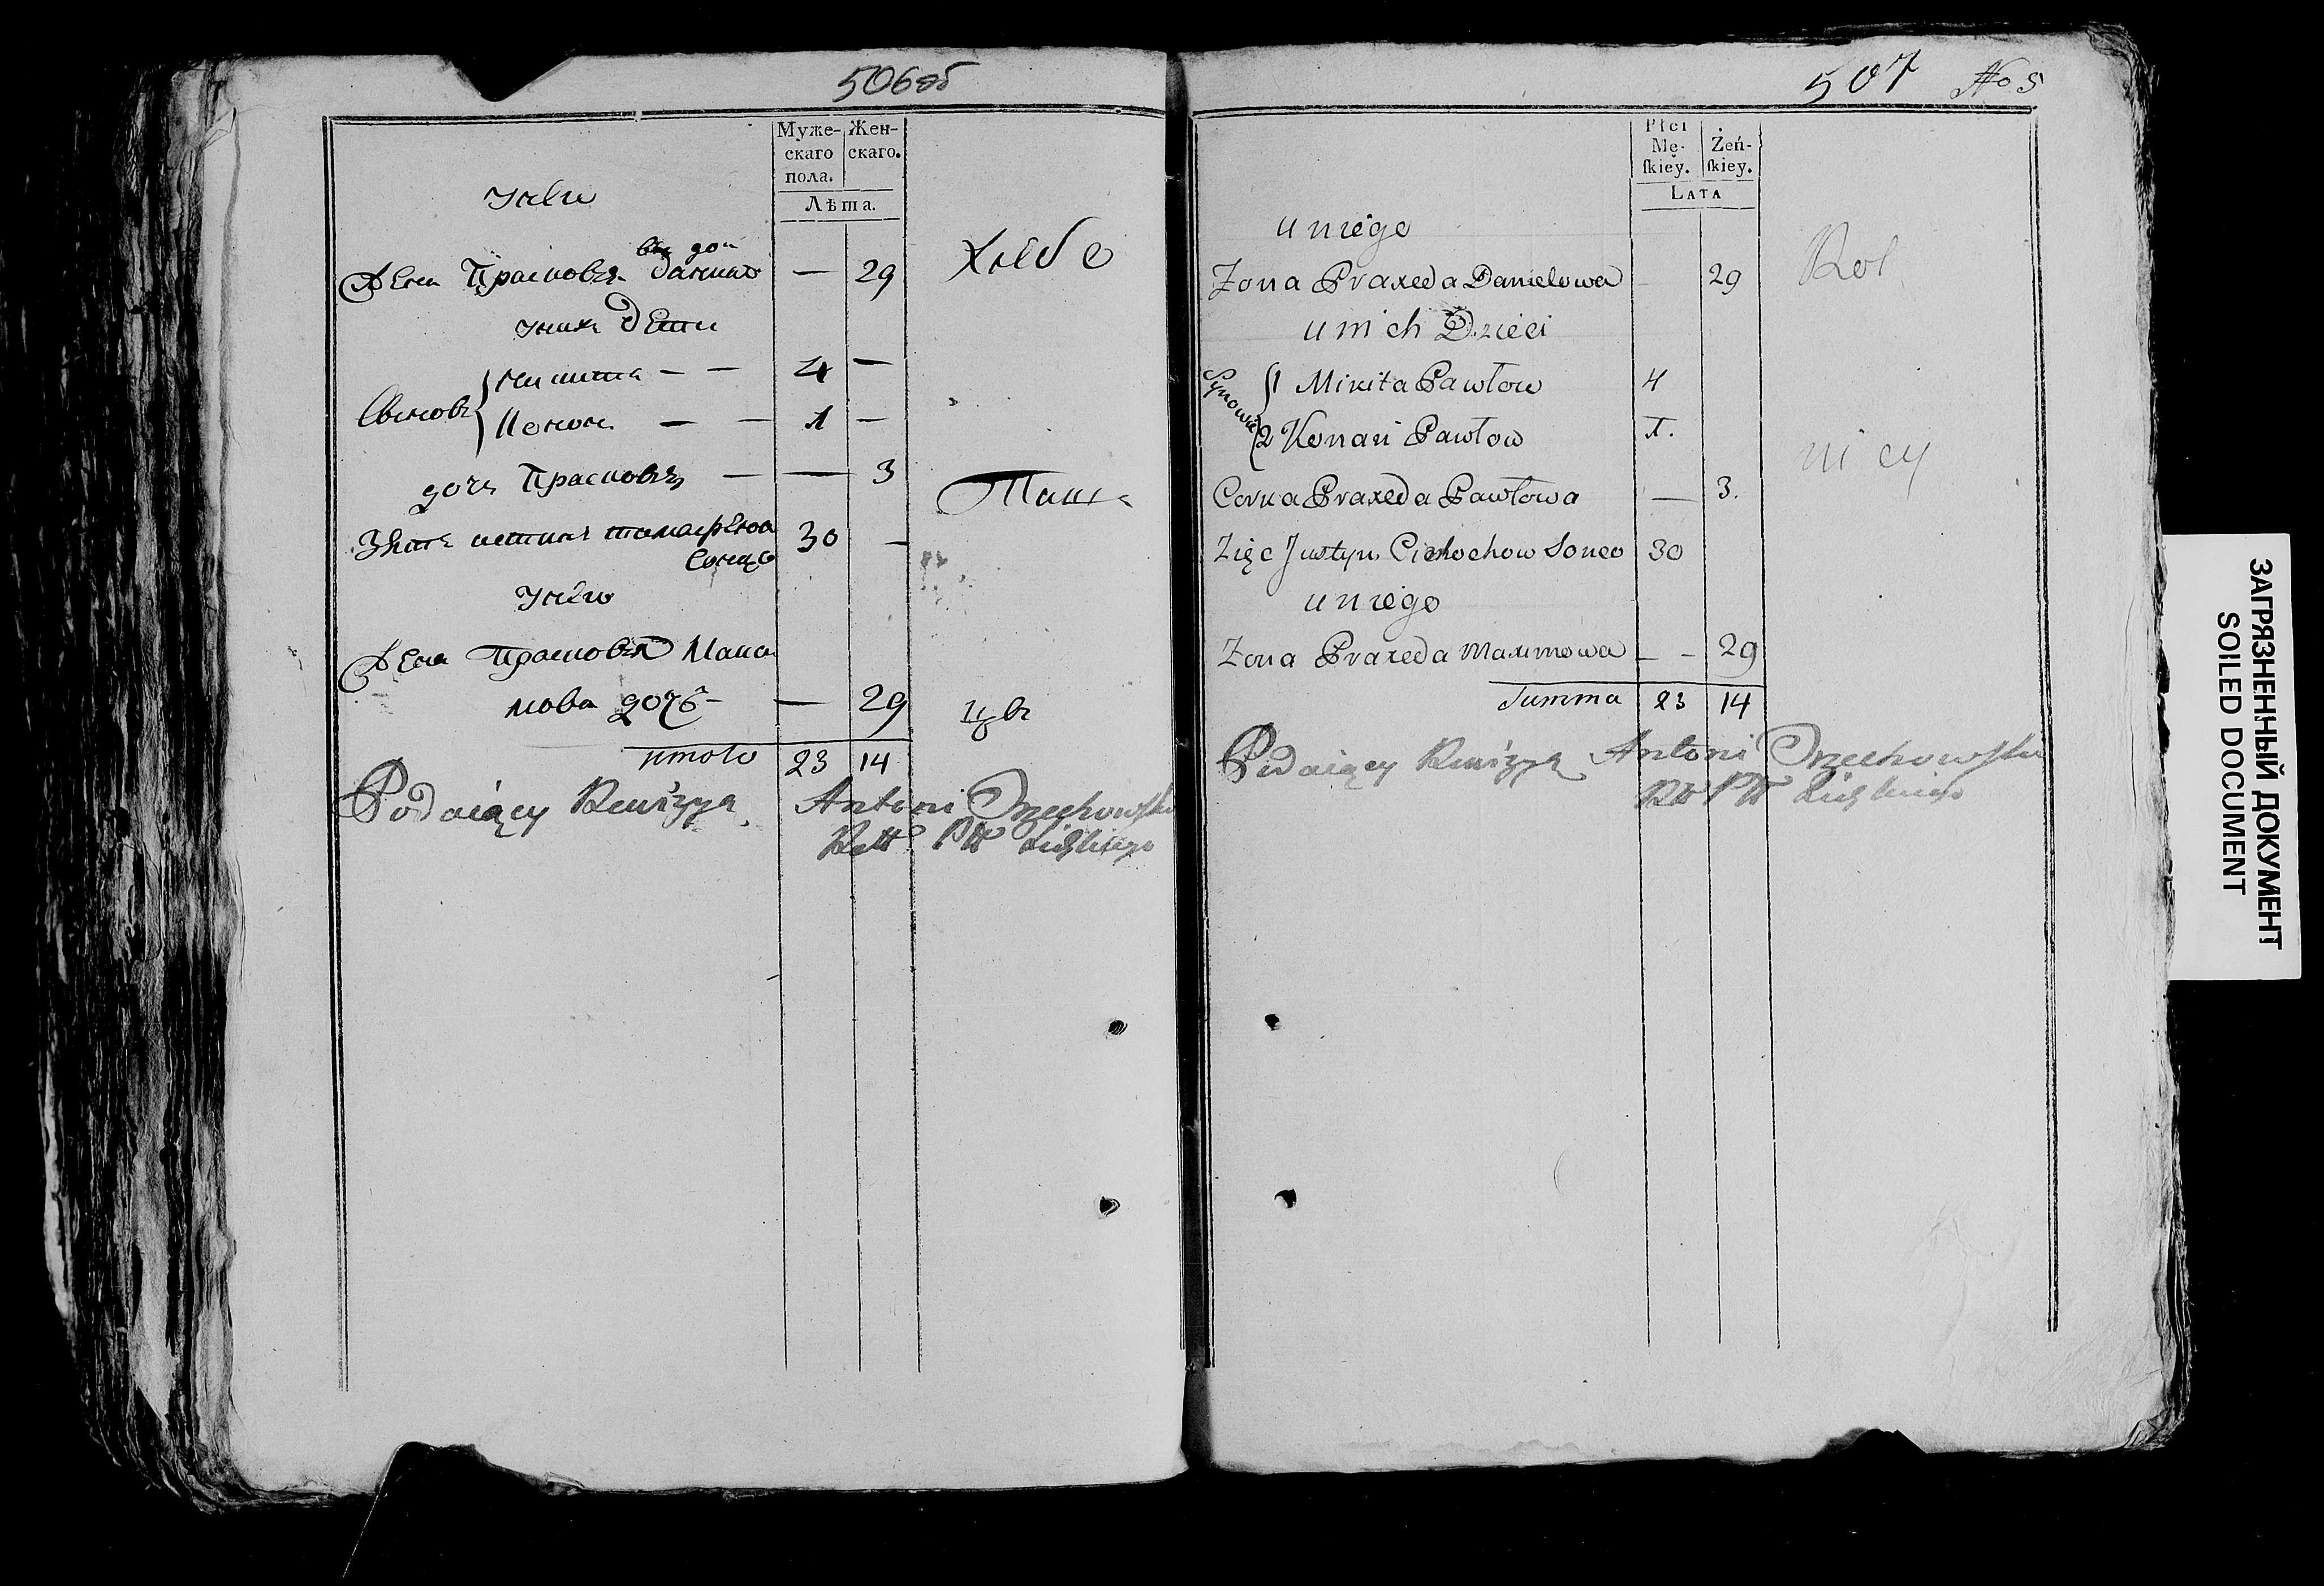 506об
Муже-
скаго
пола.
Жен-
скаго.
Лѣта.
у нево
Жена Прасковья Данило
ва доч
29
Хлебо
у них дети
Сыновя
Никита
4
Конон
1
дочь Прасковья
3
Паш
Зять
30
у нево
Жена Прасковья Макси
мова дочь
29
цы
итого 23 14
Podaiący Rewizyą Antoni Orzechowski
507 No 5
Płci
Mę-
ſkiey.
Żeń-
ſkiey.
Lata
u niego
Zona Praxeda Danielowa 29
Rol
u nich Dzieci
Synowie
1 Mikita Pawłow 4
2 Konan Pawłow 1.
nicy
Corka Praxeda Pawłowa — 3.
Zięc Justyn 30
u niego
Zona Praxeda Maximowa — - 29
Summa 23 14
Podaiący Rewizyą Antoni Orzechowski
ЗАГРЯЗНЕННЫЙ ДОКУМЕНТ
SOILED DOCUMENT